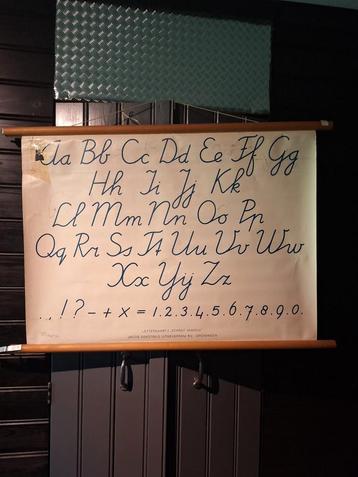 Aa Bb Cc Dd Ee Ff Gg
Hh Ii Jj Kk
Ll Mm Nn Oo Pp
Qq Rr Ss Tt Uu Vv Ww
Xx Yy Zz
. , ! ? - + x = 1.2.3.4.5.6.7.8.9.0.